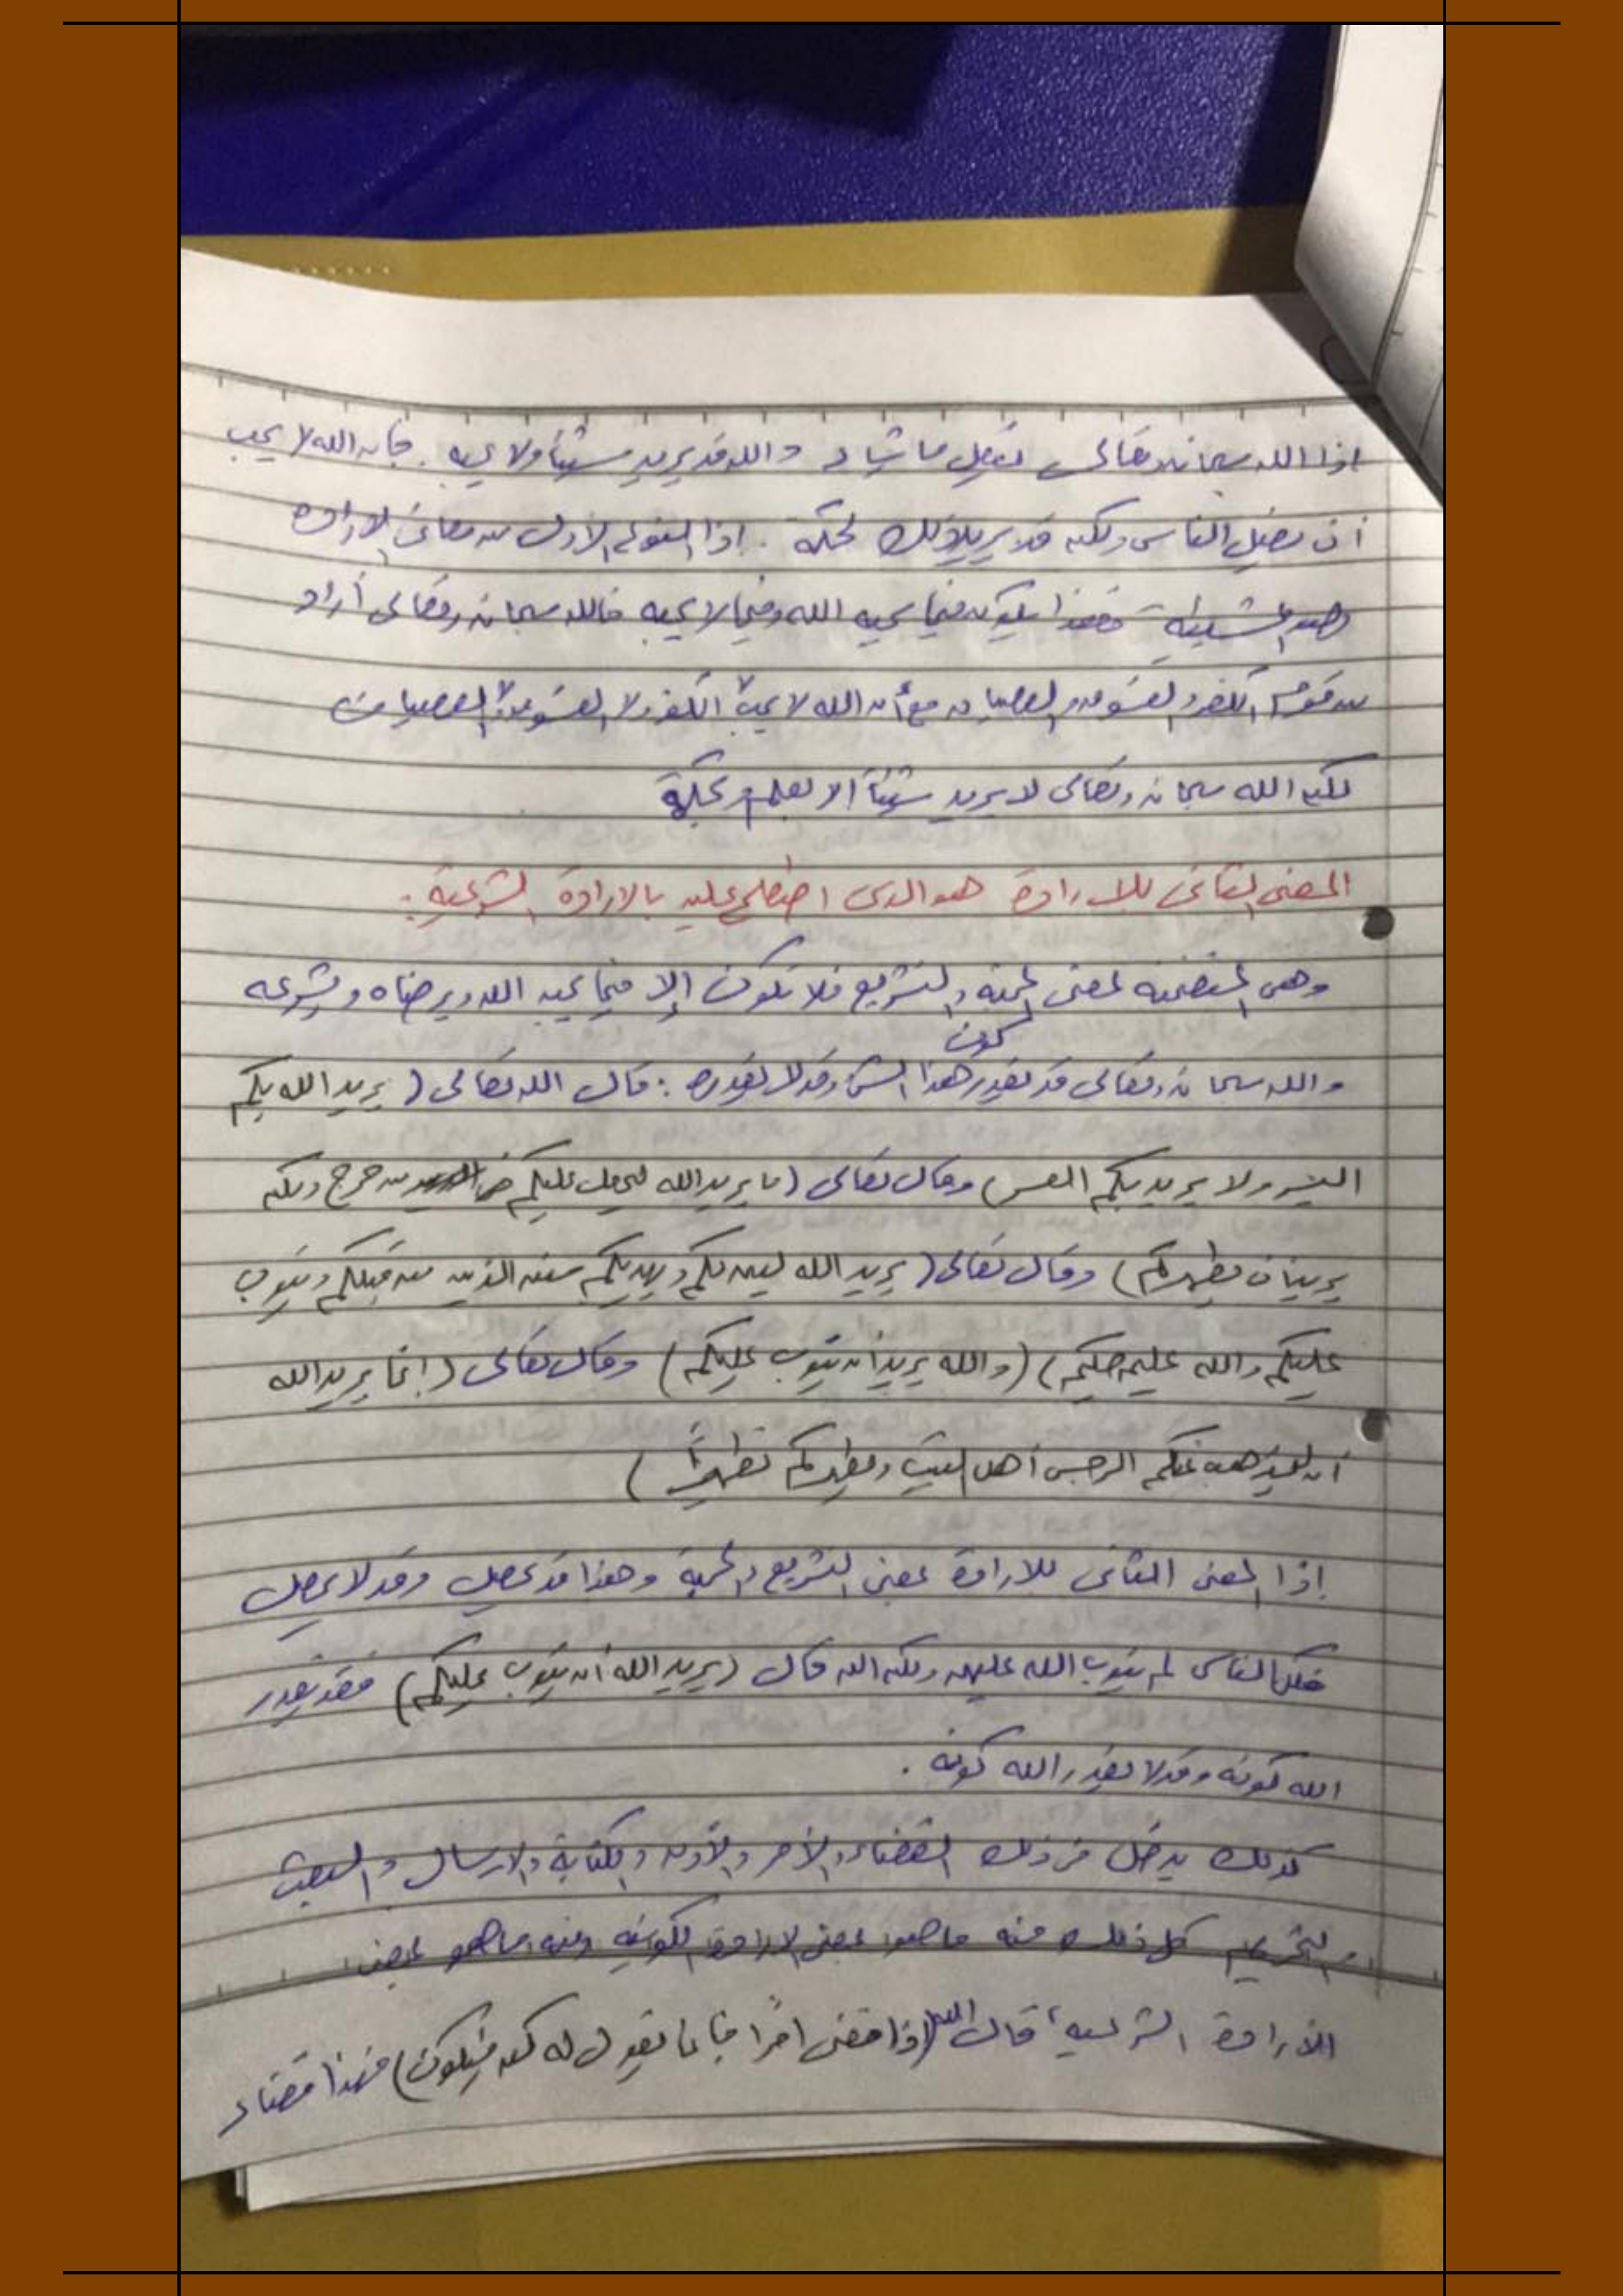 إذا الله سبحانه وتعالى يفعل ما يشاء والله قد يريد شيئا ولا يحبه . فإن الله لا يحب
أن يضل الناس ولكنه قد يريد ذلك لحكمة . إذا النوع الأول من معاني الإرادة
وهو المشيئة فهذا يكون فيما يحبه الله وفيما لا يحبه فالله سبحانه وتعالى أراد
من قوم الكفر والفسوق والعصيان مع أن الله لا يحب الكفر ولا الفسوق ولا العصيان
لكن الله سبحانه وتعالى لا يريد شيئاً إلا بعلم وحكمة
المعنى الثاني للإرادة هو الذي اصطلح عليه بالإرادة الشرعية :
وهي المتضمنة لمعنى المحبة والتشريع فلا تكون إلا فيما يحبه الله ويرضاه ويشرعه
كون
والله سبحانه وتعالى قد يقدر هذا الشئ وقد لا يقدره : قال الله تعالى ( يريد الله بكم
اليسر ولا يريد بكم العسر) وقال تعالى (ما يريد الله ليجعل عليكم من حرج ولكن
يريد أن يطهركم) وقال تعالى ( يريد الله ليبين لكم ويهديكم سنن الذين من قبلكم ويتوب
عليكم والله عليم حكيم) (والله يريد أن يتوب عليكم) وقال تعالى ( إنما يريد الله
أن ليذهب عنكم الرجس أهل البيت ويطهركم تطهيراً )
إذا المعنى الثاني للإرادة بمعنى التشريع والمحبة وهذا قد يحصل وقد لا يحصل
فكل الناس لم يتوب الله عليهم ولكن الله قال (يريد الله أن يتوب عليكم) فقد يقدر
الله كونه وقد لا يقدر الله كونه .
كذلك يدخل في ذلك القضاء والأمر والإذن والكتابة والإرسال والبعث
والتحريم كل ذلك منه ما هو بمعنى الإرادة الكونية ومنه ما هو بمعنى
الإرادة الشرعية، قال الله (إذا قضى أمراً فإنما يقول له كن فيكون) فهذا قضاء